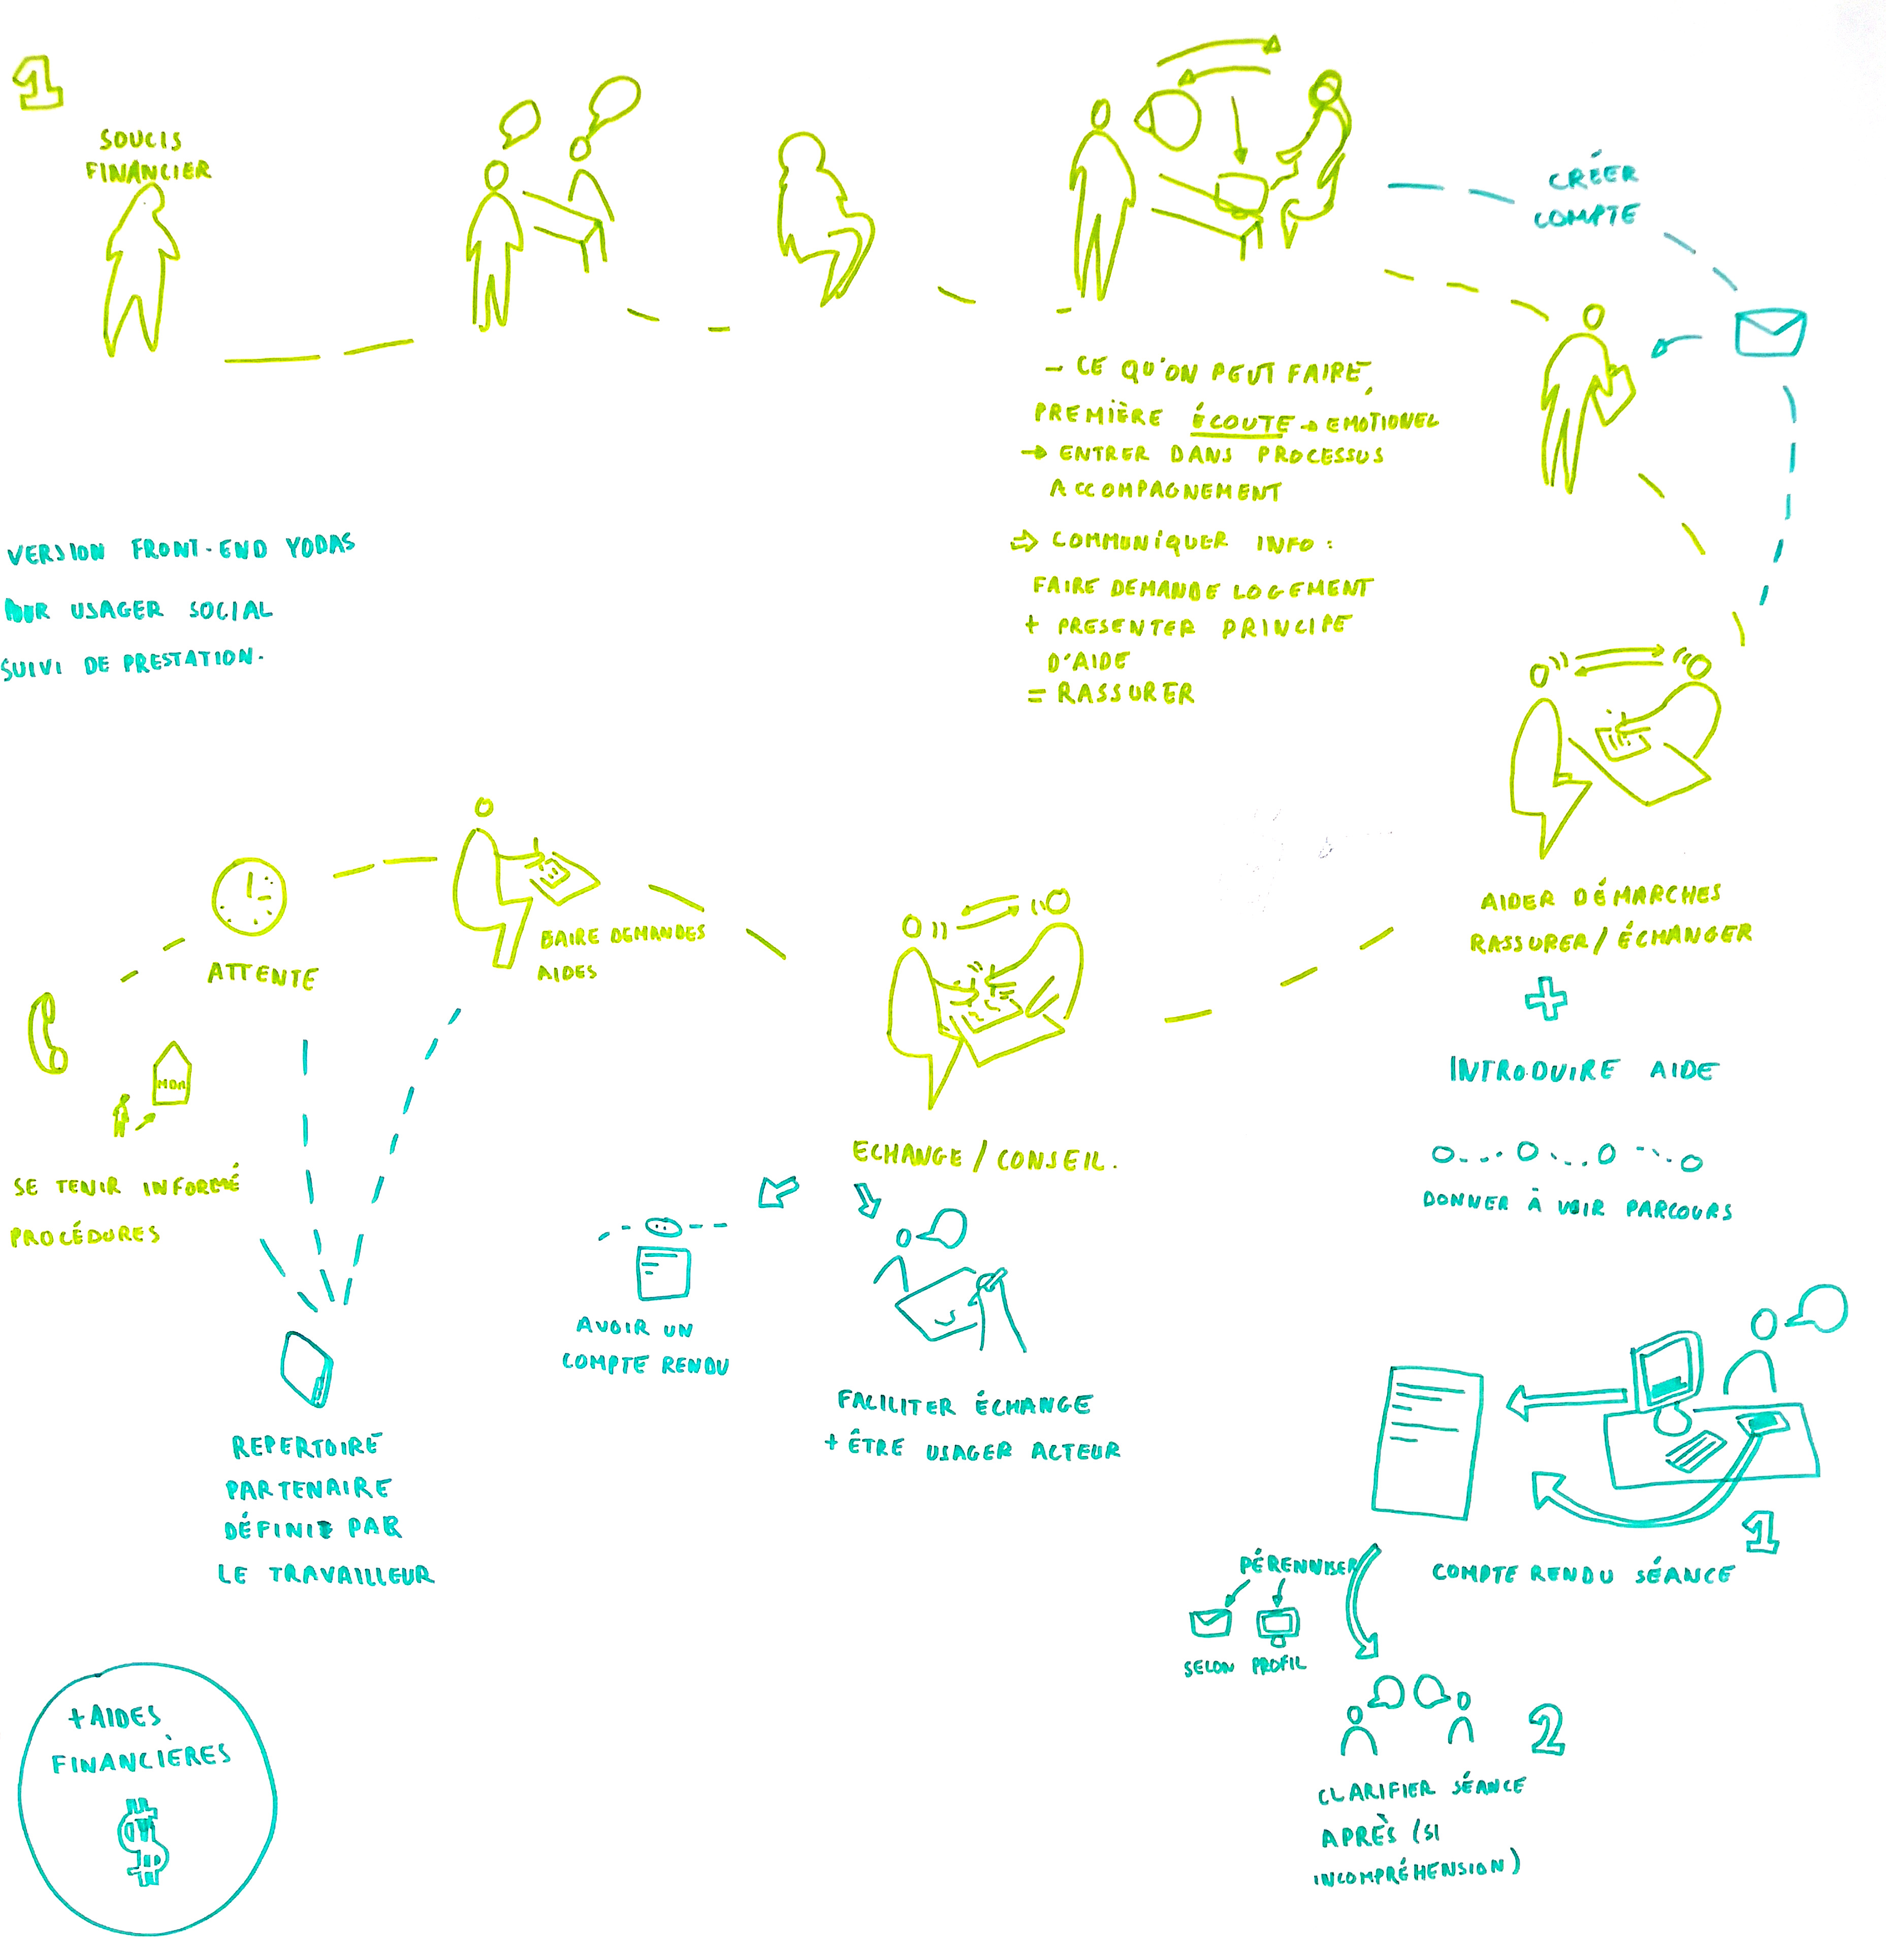 1
SOUCIS
FINANCIER
CRÉER
COMPTE
- CE QU'ON PEUT FAIRE,
PREMIÈRE ÉCOUTE → EMOTIONEL
→ ENTRER DANS PROCESSUS
ACCOMPAGNEMENT
⇒ COMMUNIQUER INFO :
FAIRE DEMANDE LOGEMENT
+ PRESENTER PRINCIPE
D'AIDE
= RASSURER
VERSION FRONT-END YODAS
POUR USAGER SOCIAL
SUIVI DE PRESTATION.
AIDER DÉMARCHES
RASSURER / ÉCHANGER
+
INTRODUIRE AIDE
DONNER À VOIR PARCOURS
ECHANGE / CONSEIL.
AVOIR UN
COMPTE RENDU
FACILITER ÉCHANGE
+ ÊTRE USAGER ACTEUR
BAIRE DEMANDES
AIDES
ATTENTE
MDR
SE TENIR INFORMÉ
PROCÉDURES
REPERTOIRE
PARTENAIRE
DÉFINIE PAR
LE TRAVAILLEUR
1
COMPTE RENDU SÉANCE
PÉRENNISER
SELON PROFIL
2
CLARIFIER SÉANCE
APRÈS (SI
INCOMPRÉHENSION)
+ AIDES
FINANCIÈRES
$